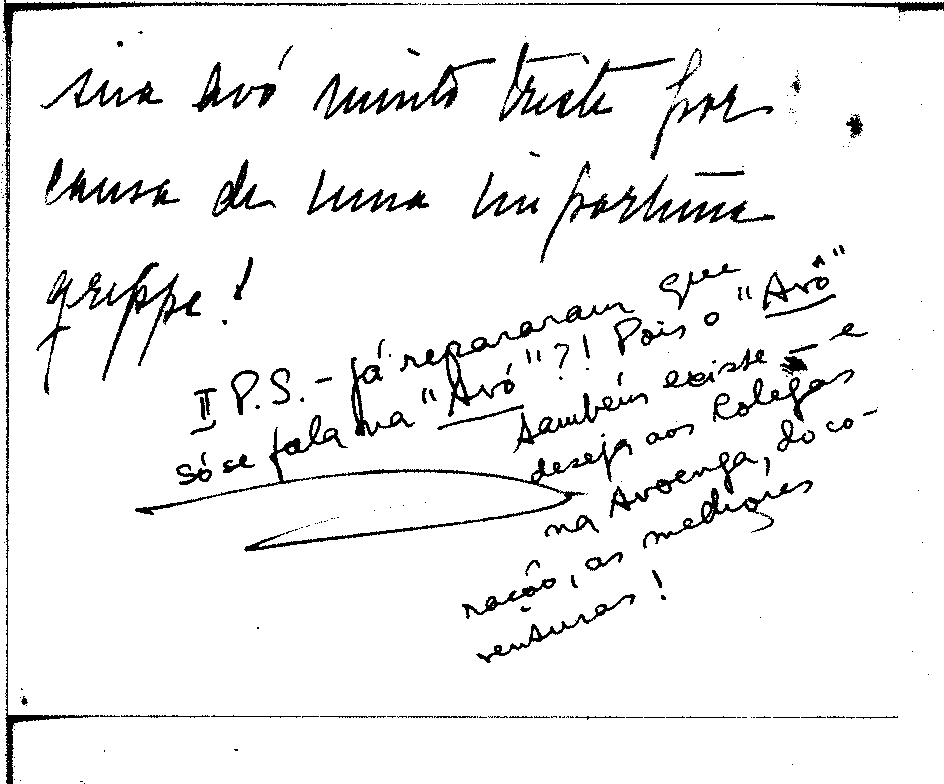 sua avó muito triste por
causa de uma importuna
grippe!
II P.S. - Já repararam que
só se fala na "Avó"?! Pois o "Avô"
também existe - e
deseja aos Colegas
na Avoenga, do co-
ração, as melhores
venturas!